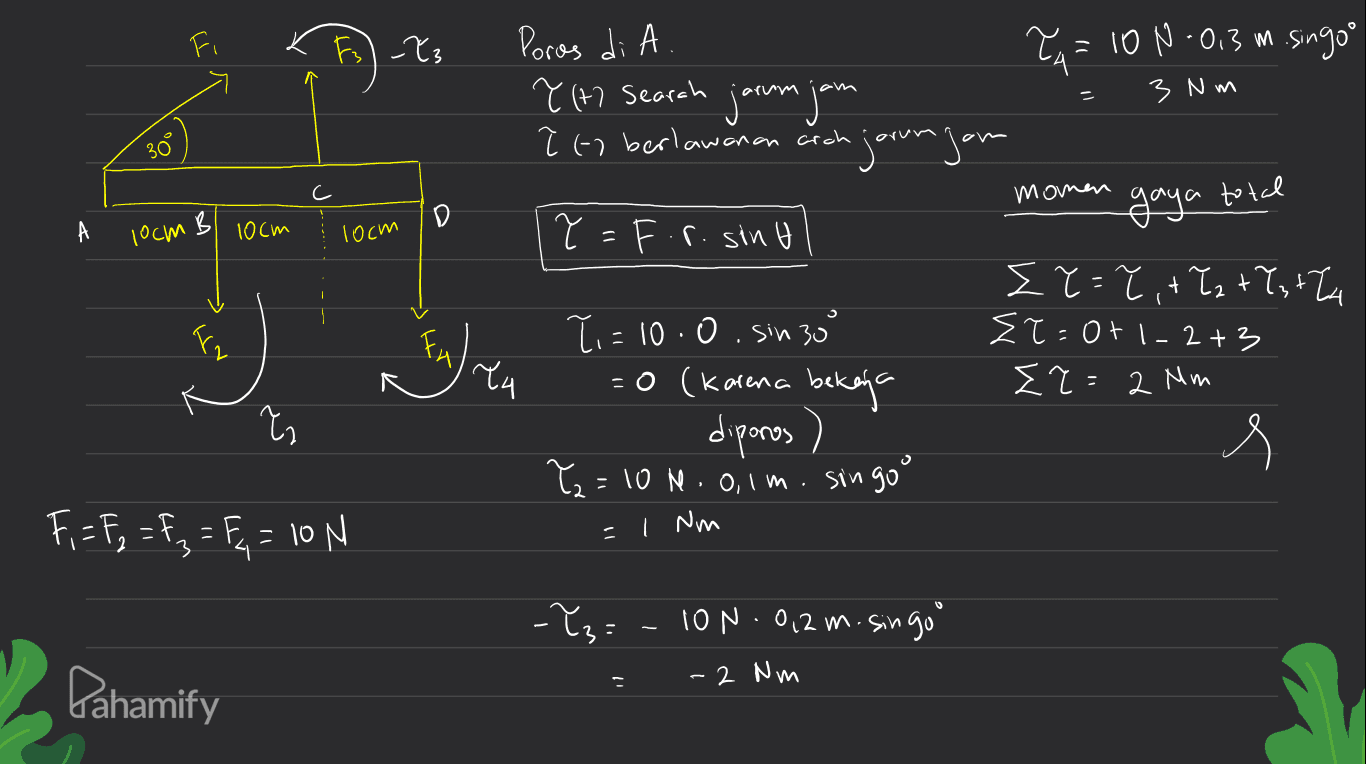 F₁
F₃
-τ₃
30°
A
10cm
B
10cm
C
10cm
D
F₂
F₄
τ₂
τ₄
F₁ = F₂ = F₃ = F₄ = 10 N
Poros di A.
τ (+) Searah jarum jam
τ (-) berlawanan arah jarum jam
τ = F . r . sin θ
τ₁ = 10 . 0 . sin 30°
= 0 (karena bekerja
diporos)
τ₂ = 10 N . 0,1 m . sin 90°
= 1 Nm
-τ₃ = - 10 N . 0,2 m . sin 90°
= -2 Nm
τ₄ = 10 N . 0,3 m . sin 90°
= 3 Nm
momen gaya total
Σ τ = τ₁ + τ₂ + τ₃ + τ₄
Σ τ = 0 + 1 - 2 + 3
Σ τ = 2 Nm
Pahamify